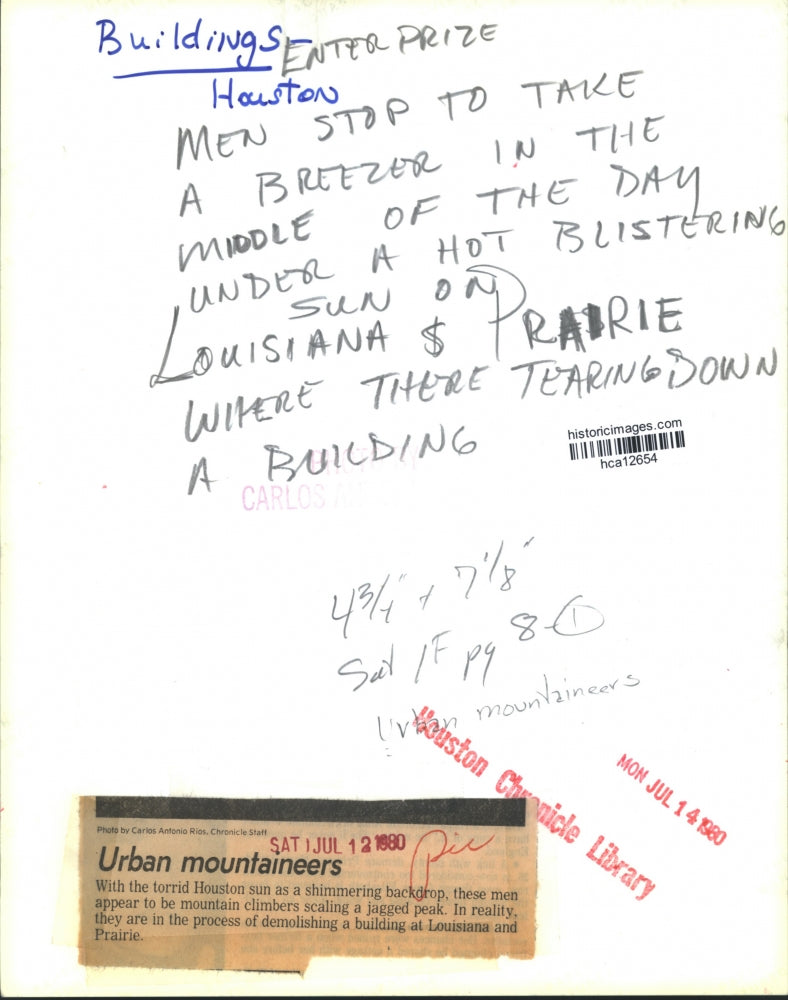 Buildings-
ENTERPRIZE
Houston
MEN STOP TO TAKE
A BREEZER IN THE
MIDDLE OF THE DAY
UNDER A HOT BLISTERING
SUN ON
LOUISIANA $ PRAIRIE
WHERE THERE TEARING DOWN
A BUILDING
historicimages.com
hca12654
CARLOS
4 3/4" x 7 1/8"
Sat 1F pg 8-1
Urban mountaineers
Houston Chronicle Library
MON JUL 14 1980
Photo by Carlos Antonio Rios, Chronicle Staff
SAT JUL 12 1980
pic
Urban mountaineers
With the torrid Houston sun as a shimmering backdrop, these men
appear to be mountain climbers scaling a jagged peak. In reality,
they are in the process of demolishing a building at Louisiana and
Prairie.